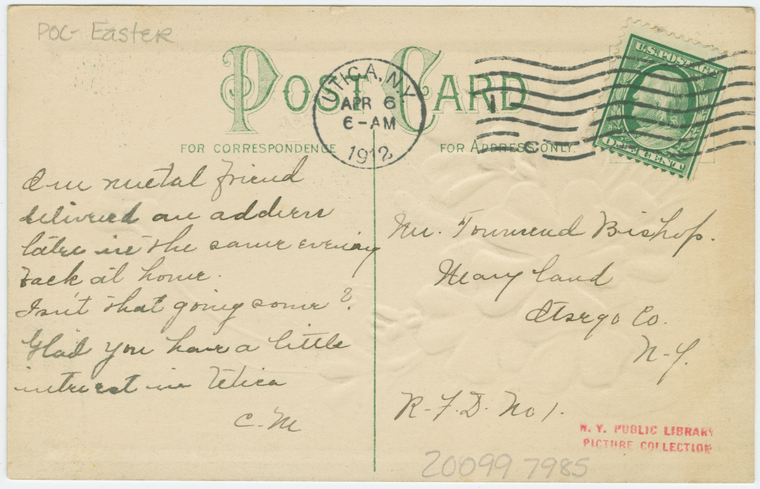 POC- Easter
POST CARD
UTICA, N.Y.
APR 6
6-AM
1912
U.S. POSTAGE
FOR CORRESPONDENCE
FOR ADDRESS ONLY.
Our mutal friend
delivered an address
later in the same evening
back at home.
Isn't that going some?
Glad you have a little
intrest in Utica
C. M
Mr. Townsend Bishop.
Maryland
Otsego Co.
N-Y.
R-F.D. No 1.
N. Y. PUBLIC LIBRARY
PICTURE COLLECTION
20099 7985